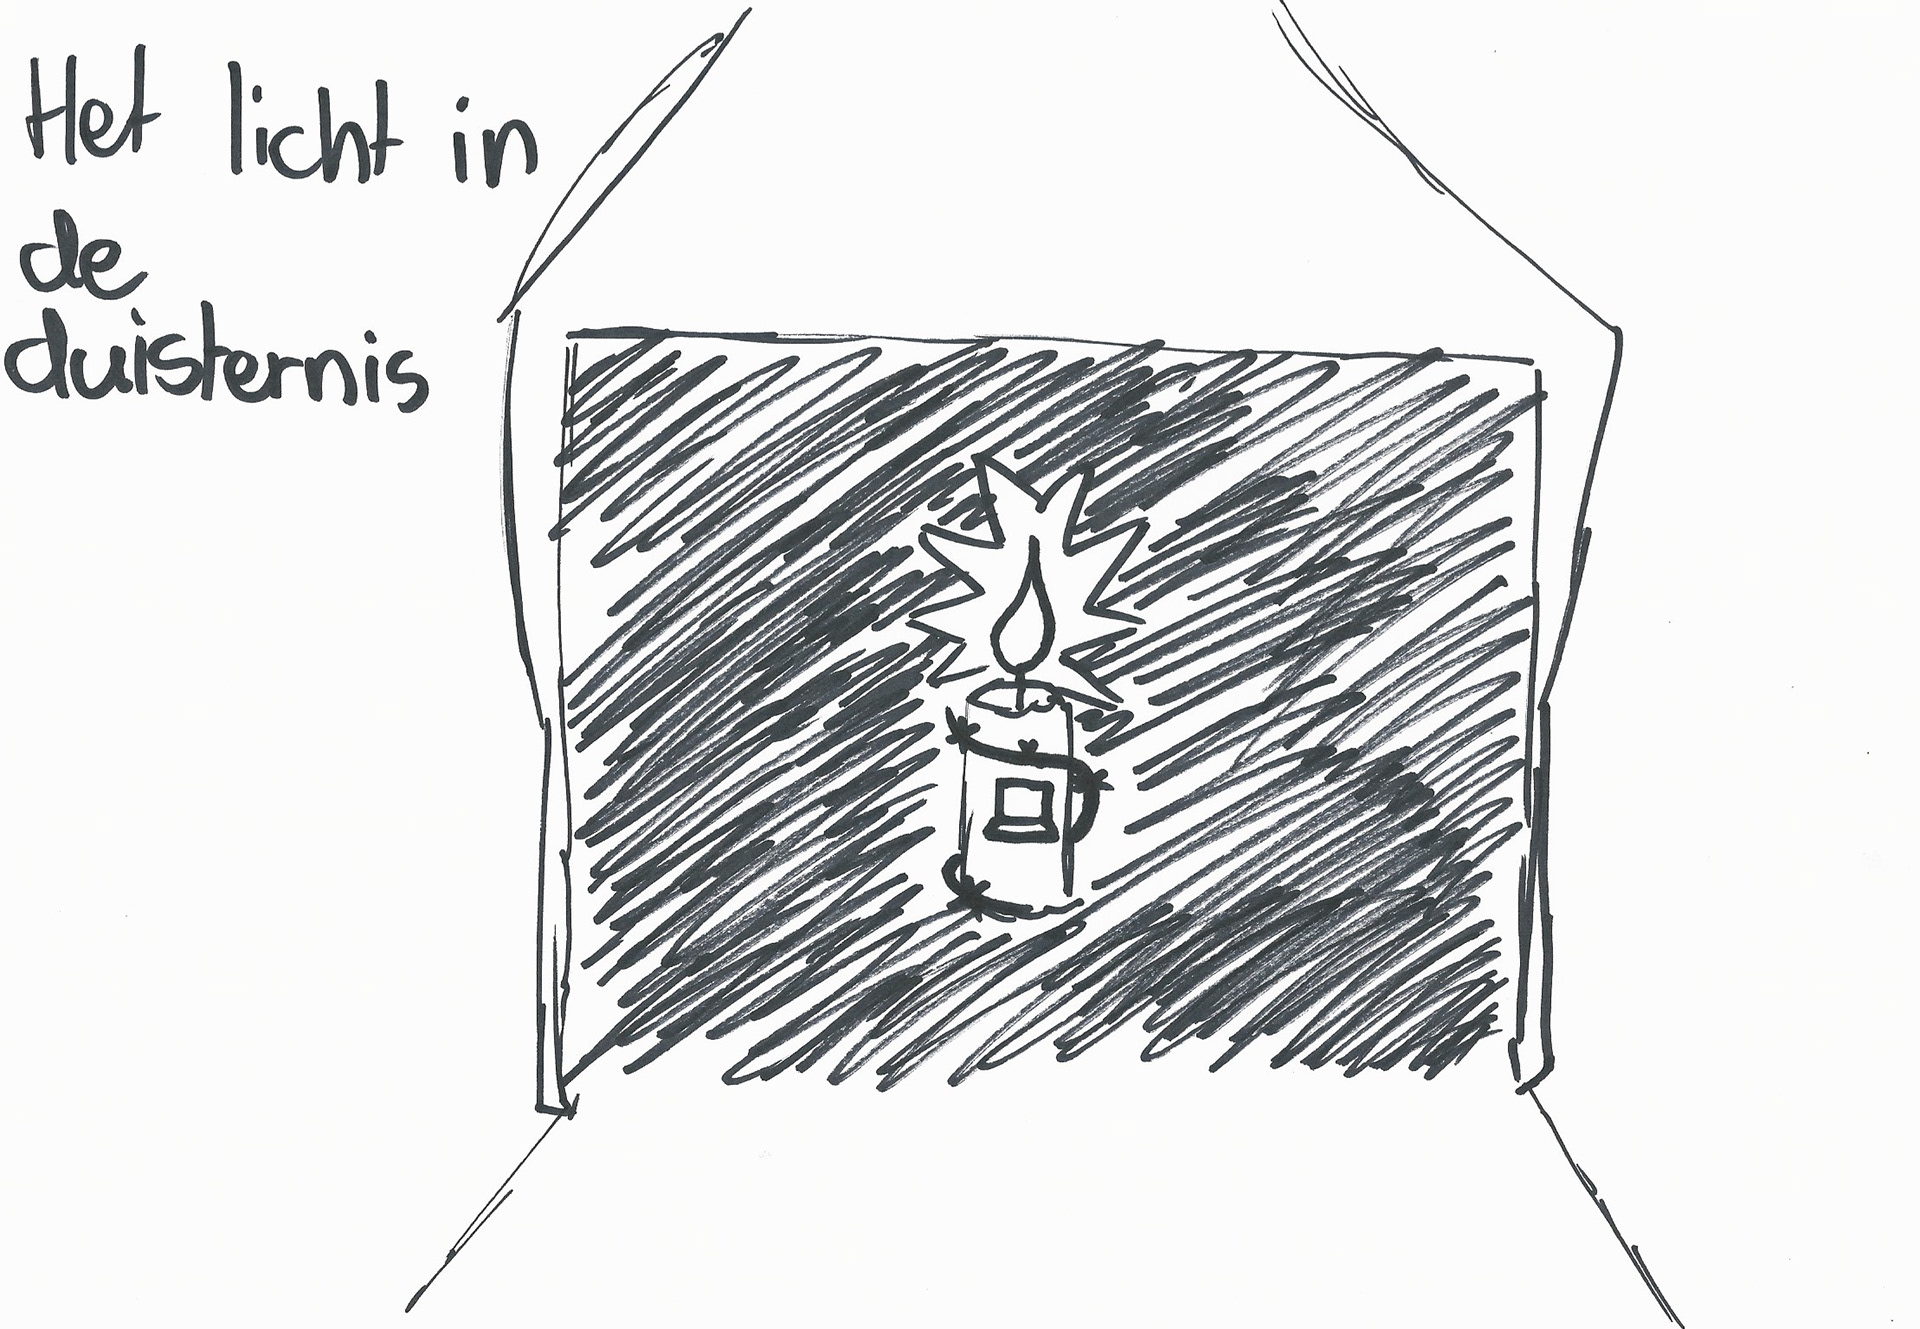 Het licht in
de
duisternis